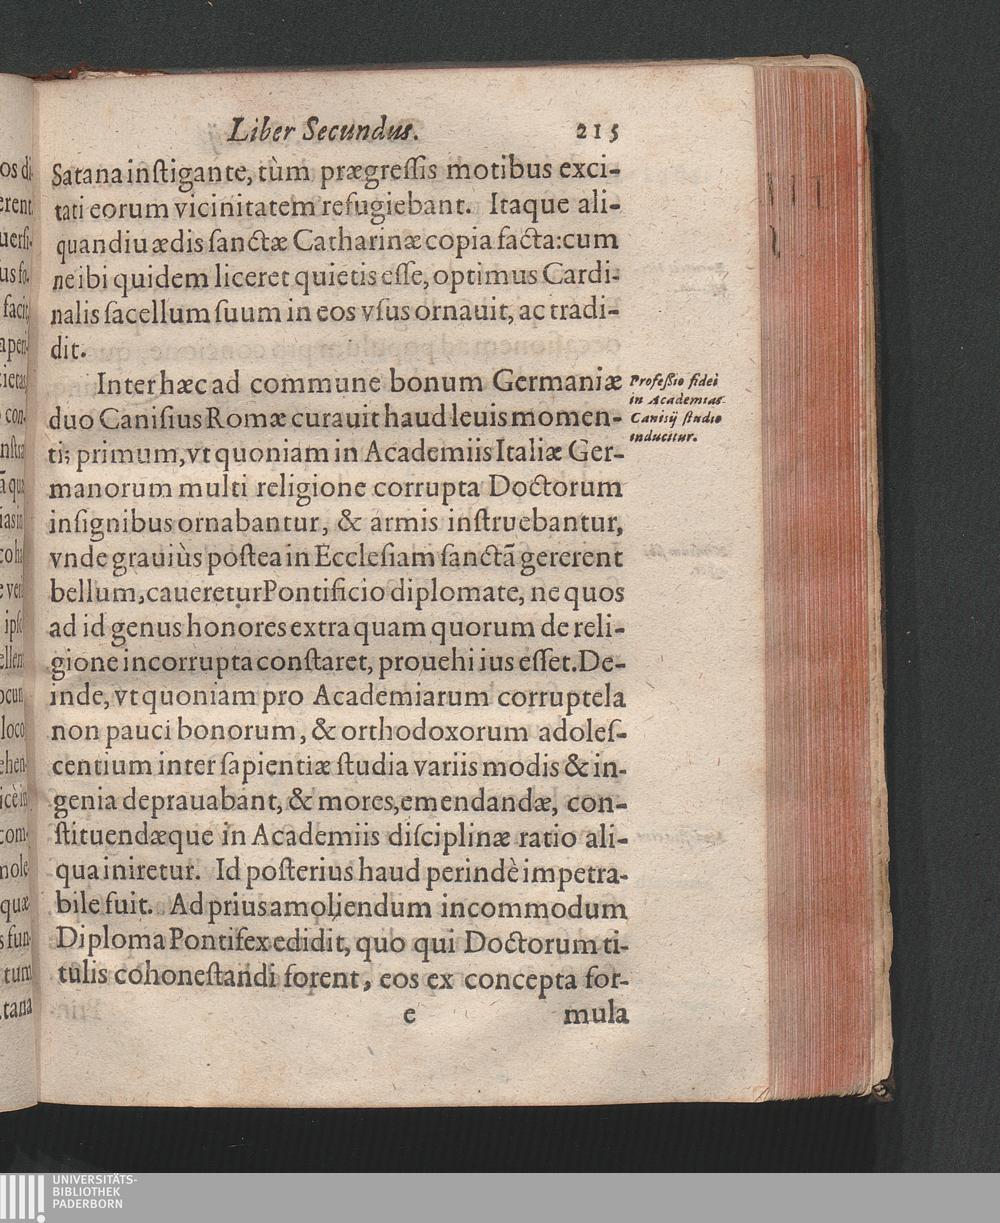 Liber Secundus. 215
Satana inſtigante, tùm prægreſſis motibus exci-
tati eorum vicinitatem refugiebant. Itaque ali-
quandiu ædis ſanctæ Catharinæ copia facta: cum
ne ibi quidem liceret quietis eſſe, optimus Cardi-
nalis ſacellum ſuum in eos vſus ornauit, ac tradi-
dit.
Inter hæc ad commune bonum Germaniæ
duo Caniſius Romæ curauit haud leuis momen-
ti; primum, vt quoniam in Academiis Italiæ Ger-
manorum multi religione corrupta Doctorum
inſignibus ornabantur, & armis inſtruebantur,
vnde grauiùs poſtea in Eccleſiam ſanctã gererent
bellum, caueretur Pontificio diplomate, ne quos
ad id genus honores extra quam quorum de reli-
gione incorrupta conſtaret, prouehi ius eſſet. De-
inde, vt quoniam pro Academiarum corruptela
non pauci bonorum, & orthodoxorum adoleſ-
centium inter ſapientiæ ſtudia variis modis & in-
genia deprauabant, & mores, emendandæ, con-
ſtituendæque in Academiis diſciplinæ ratio ali-
qua iniretur. Id poſterius haud perindè impetra-
bile fuit. Ad prius amoliendum incommodum
Diploma Pontifex edidit, quo qui Doctorum ti-
tulis cohoneſtandi forent, eos ex concepta for-
e mula
Profeßio fidei
in Academias
Caniſij ſtudio
inducitur.
UNIVERSITÄTS-
BIBLIOTHEK
PADERBORN